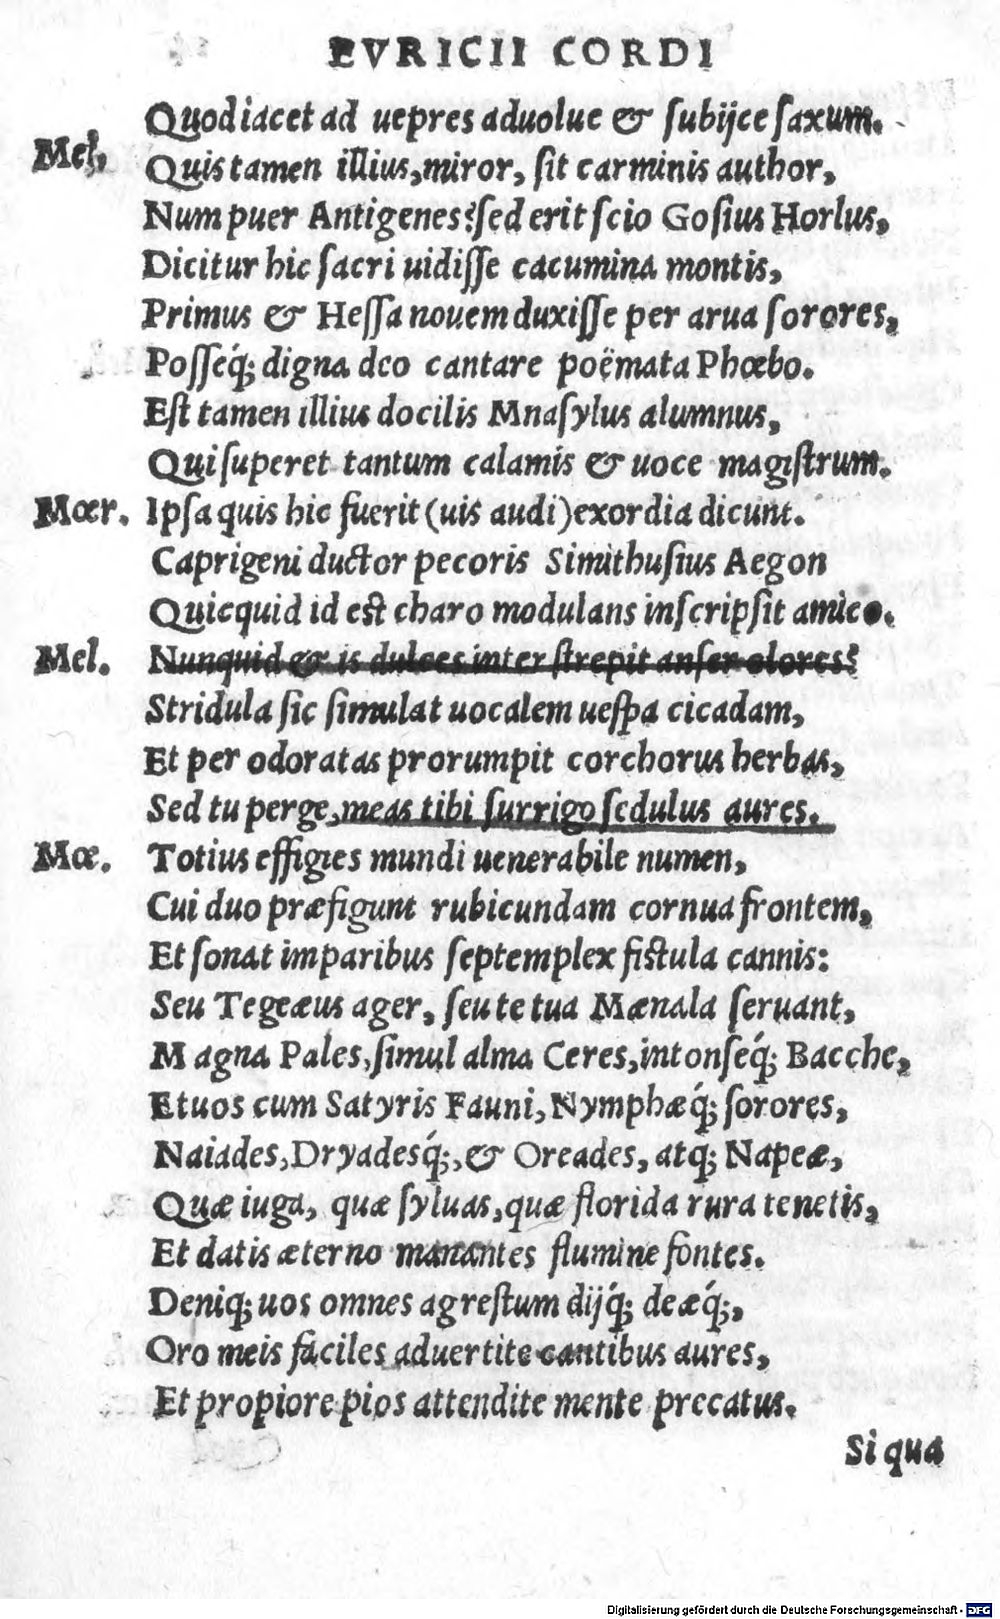 EVRICII CORDI
Quod iacet ad uepres aduolue & ſubijce ſaxum.
Mel. Quis tamen illius, miror, ſit carminis author,
Num puer Antigenes? ſed erit ſcio Goſius Horlus,
Dicitur hic ſacri uidiſſe cacumina montis,
Primus & Heſſa nouem duxiſſe per arua ſorores,
Poſſeq́; digna deo cantare poëmata Phœbo.
Eſt tamen illius docilis Mnaſylus alumnus,
Qui ſuperet tantum calamis & uoce magiſtrum.
Mœr. Ipſa quis hic fuerit (uis audi) exordia dicunt.
Caprigeni ductor pecoris Simithuſius Aegon
Quicquid id eſt charo modulans inſcripſit amico.
Mel. Nunquid & is dulces inter ſtrepit anſer olores?
Stridula ſic ſimulat uocalem ueſpa cicadam,
Et per odoratas prorumpit corchorus herbas,
Sed tu perge, meas tibi ſurrigo ſedulus aures.
Mœ. Totius effigies mundi uenerabile numen,
Cui duo præfigunt rubicundam cornua frontem,
Et ſonat imparibus ſeptemplex fiſtula cannis:
Seu Tegeæus ager, ſeu te tua Mænala ſeruant,
Magna Pales, ſimul alma Ceres, intonſeq́; Bacche,
Et uos cum Satyris Fauni, Nymphæq́; ſorores,
Naiades, Dryadesq́;, & Oreades, atq; Napeæ,
Quæ iuga, quæ ſyluas, quæ florida rura tenetis,
Et datis æterno manantes flumine fontes.
Deniq; uos omnes agreſtum dijq́; deæq́;,
Oro meis faciles aduertite cantibus aures,
Et propiore pios attendite mente precatus.
Si qua
Digitalisierung gefördert durch die Deutsche Forschungsgemeinschaft - DFG